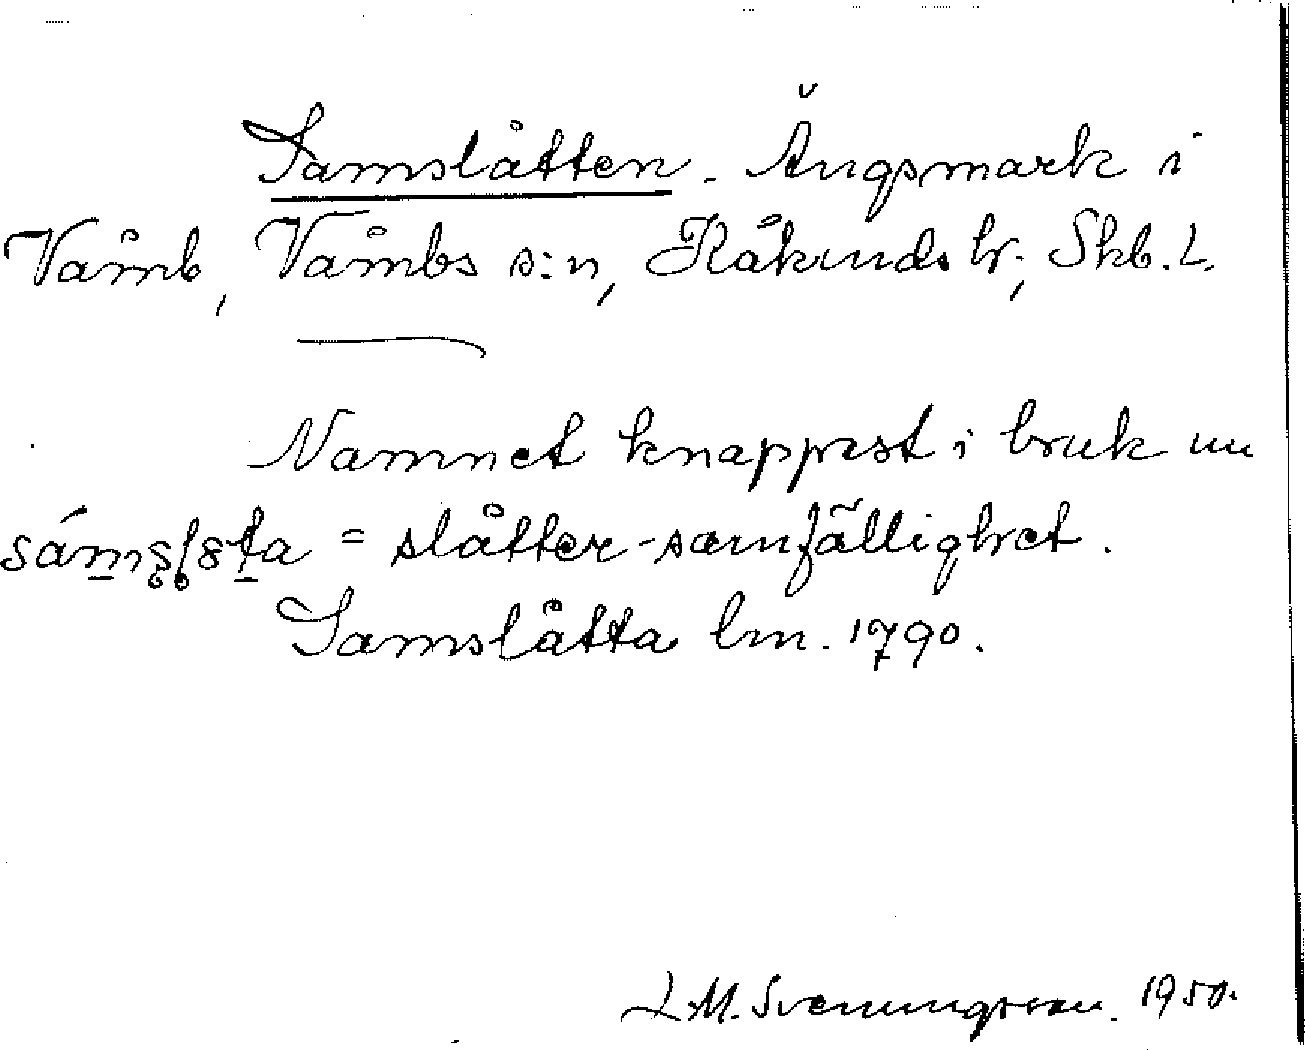 Samslåtten. Ängsmark i
Våmb, Våmbs s:n, Kåkinds hr, Skb. L.
Namnet knappast i bruk nu
= slåtter-samfällighet.
Samslåtta lm. 1790.
L. M. Svenungsson. 1950.